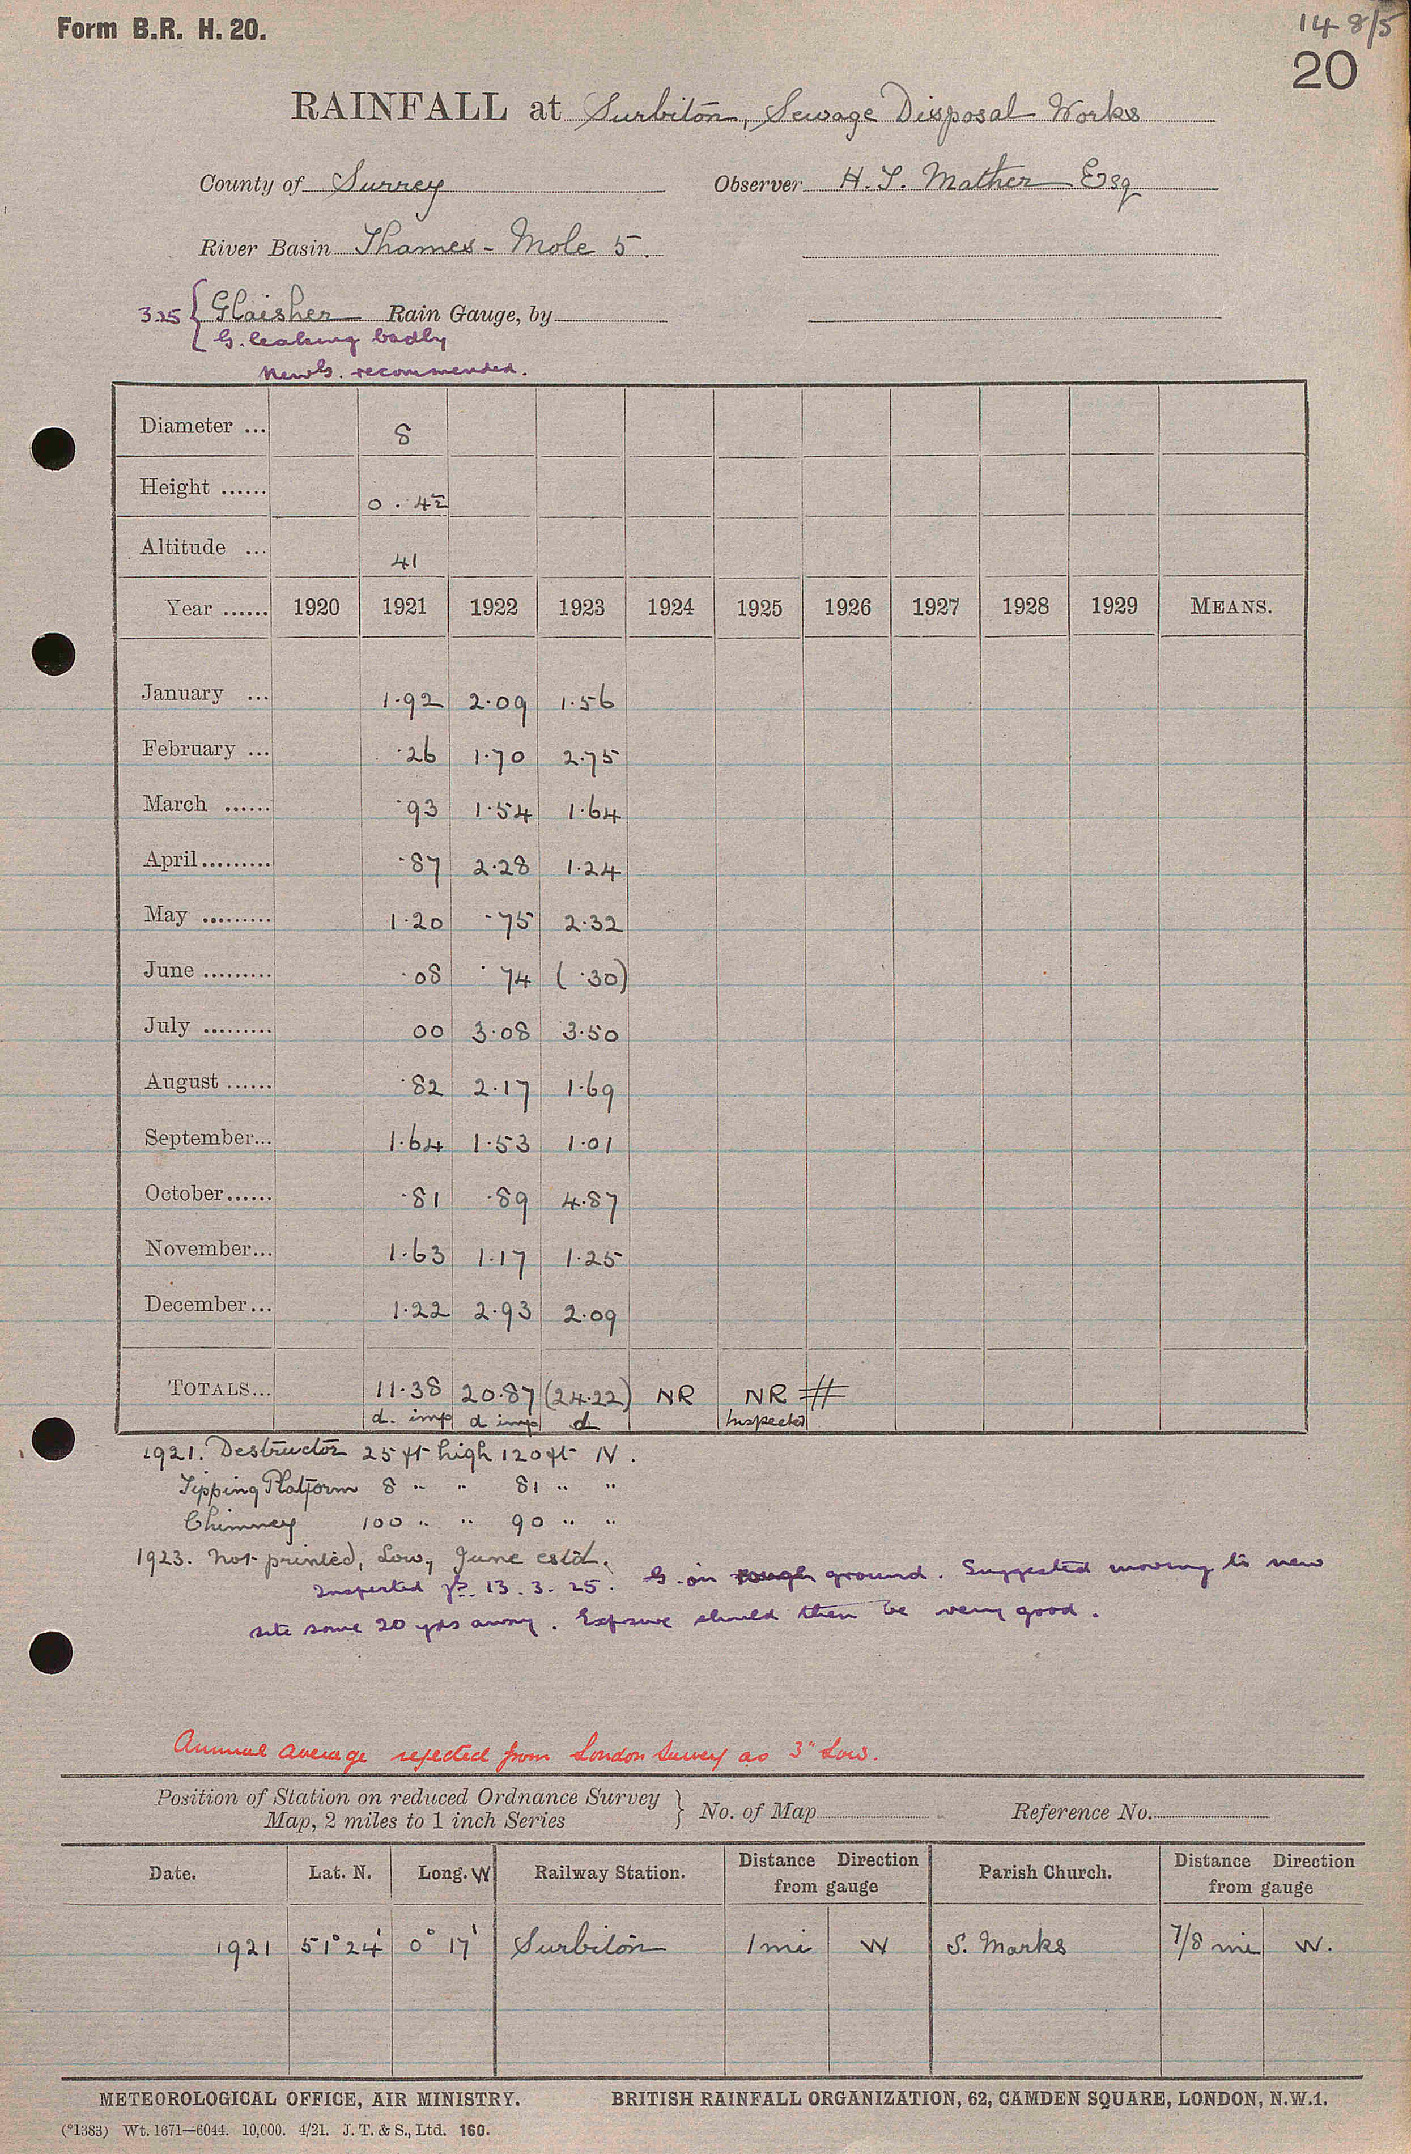 Form B.R. H. 20.
148/5
20
RAINFALL at Surbiton, Sewage Disposal Works
County of Surrey Observer H. S. Mather Esq
River Basin Thames - Mole 5.
3.25 { Glaisher Rain Gauge, by
G. leaking badly
New G. recommended.
Diameter ... 8
Height ...... 0 . 4
Altitude ... 41
Year ...... 1920 1921 1922 1923 1924 1925 1926 1927 1928 1929 MEANS.
January ... 1.92 2.09 1.56
February ... .26 1.70 2.75
March ...... .93 1.54 1.64
April ......... .87 2.28 1.24
May ......... 1.20 .75 2.32
June ......... .08 .74 (.30)
July ......... 00 3.08 3.50
August ...... .82 2.17 1.69
September... 1.64 1.53 1.01
October...... .81 .89 4.87
November... 1.63 1.17 1.25
December... 1.22 2.93 2.09
TOTALS... 11.38 20.87 (24.22) NR NR #
d. imp d imp d Inspected
1921. Destructor 25 ft high 120 ft N.
Tipping Platform 8 " " 81 " "
Chimney 100 " " 90 " "
1923. Not printed, Low, June est'd.
Inspected 13.3.25. G. on rough ground. Suggested moving to new
site some 20 yds away. Exposure should then be very good.
Annual Average rejected from London Survey as 3" Low.
Position of Station on reduced Ordnance Survey
Map, 2 miles to 1 inch Series } No. of Map Reference No.
Date. Lat. N. Long. W Railway Station. Distance Direction from gauge Parish Church. Distance Direction from gauge
1921 51° 24' 0° 17' Surbiton 1 mi W S. Marks 7/8 mi W.
METEOROLOGICAL OFFICE, AIR MINISTRY. BRITISH RAINFALL ORGANIZATION, 62, CAMDEN SQUARE, LONDON, N.W.1.
(*1383) Wt. 1671—6044. 10,000. 4/21. J. T. & S., Ltd. 160.